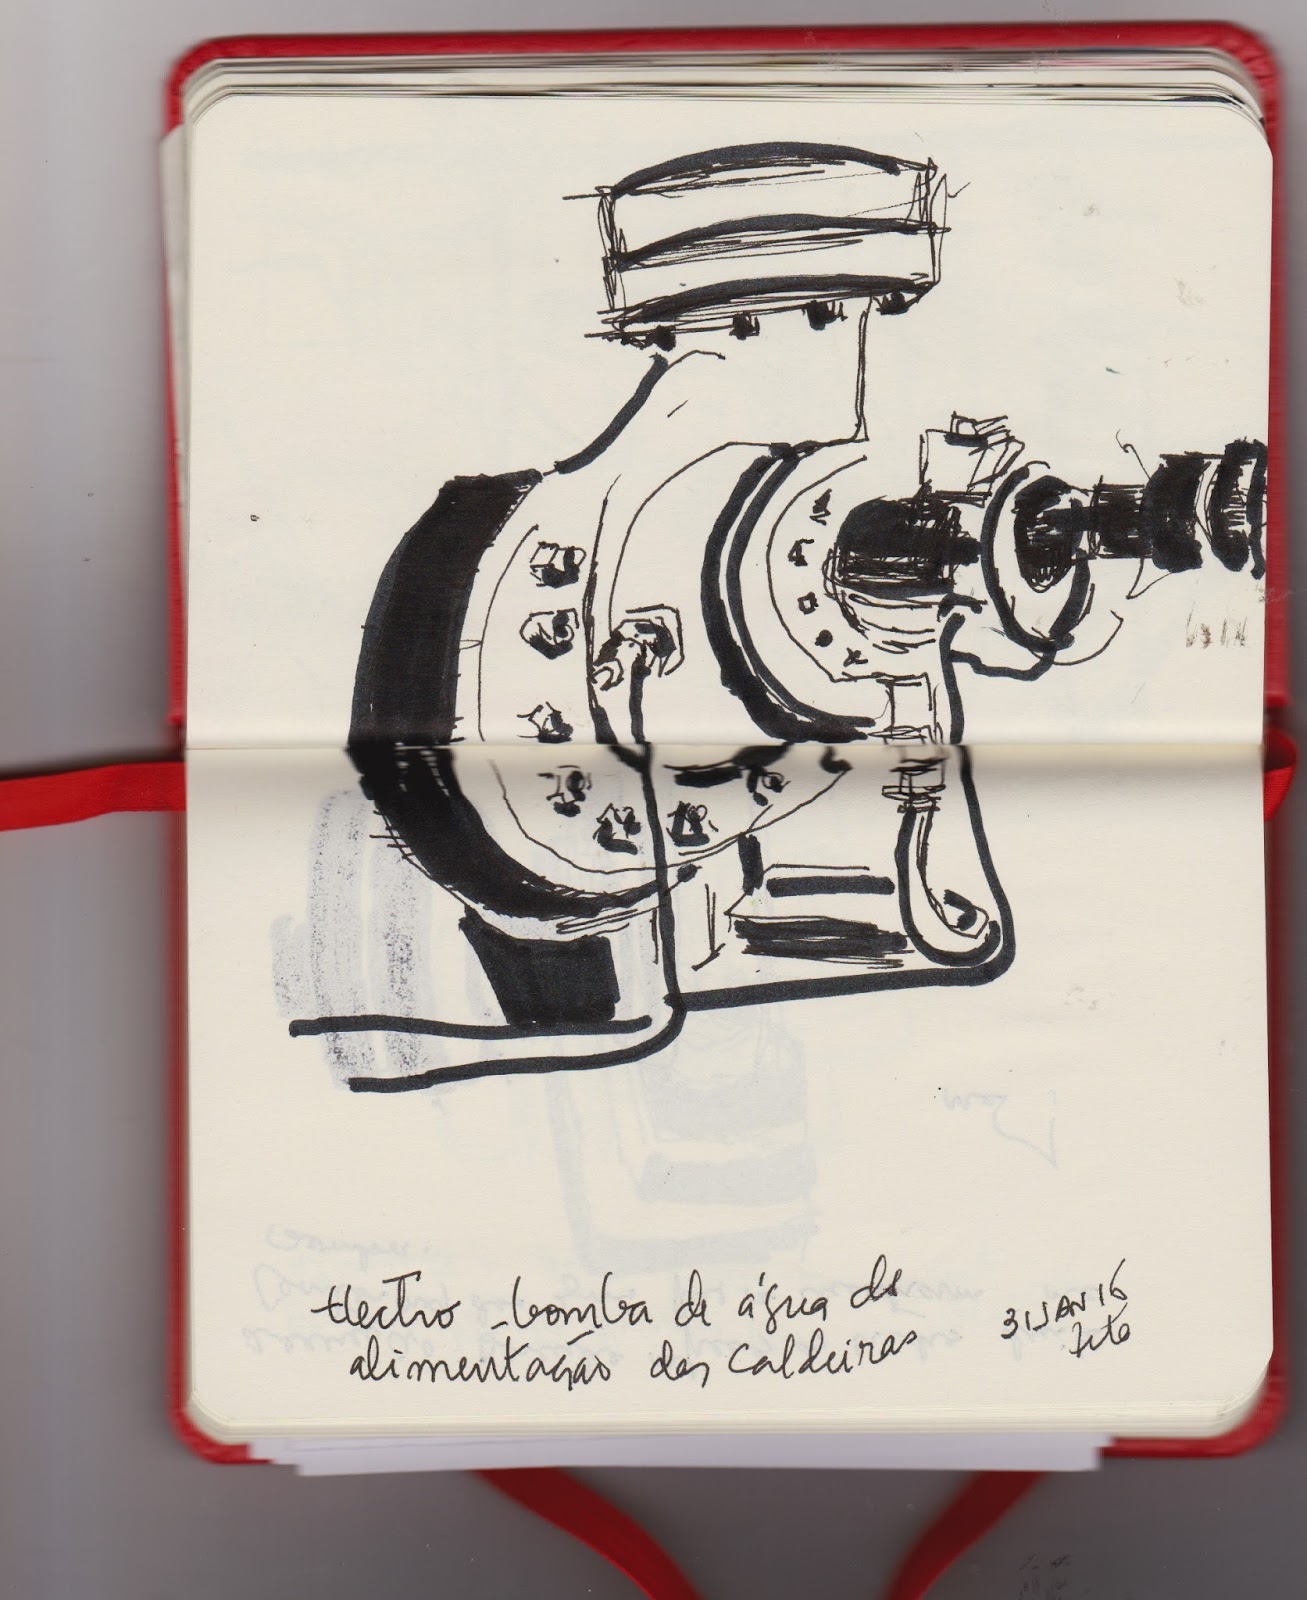 Electro-bomba de água de
alimentação das caldeiras
31 JAN 16